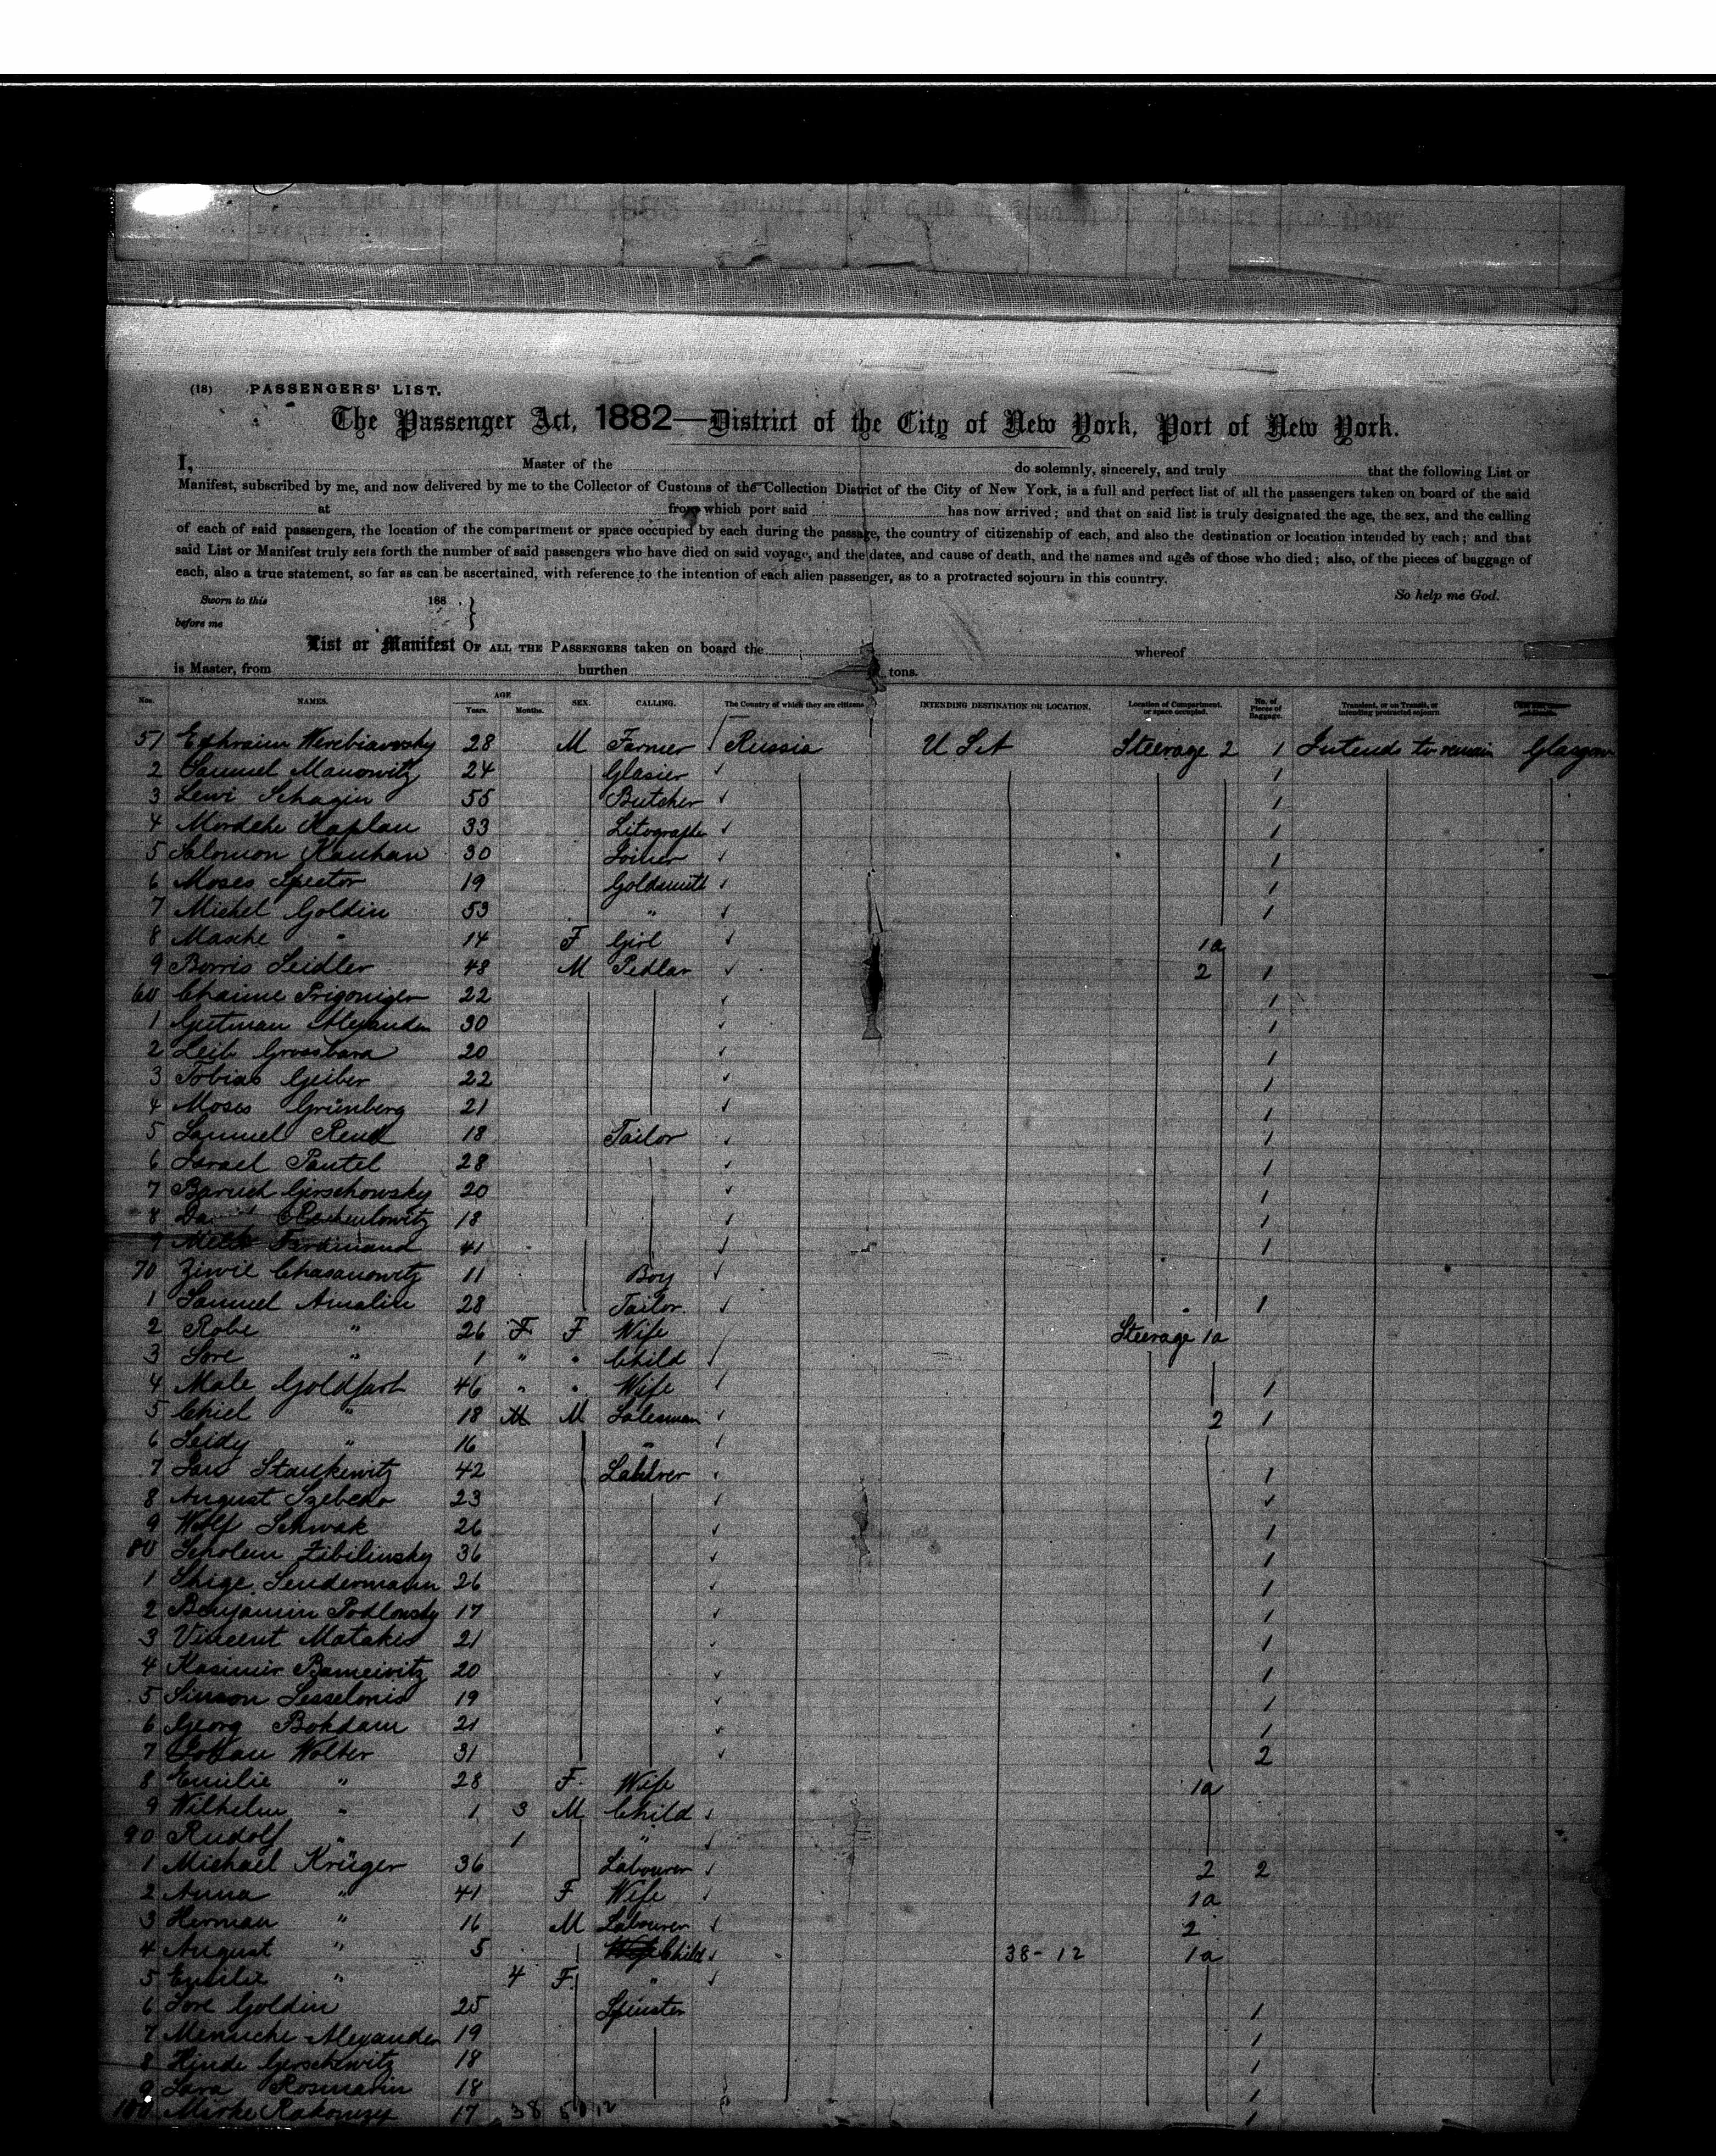 (18) PASSENGERS' LIST.
The Passenger Act, 1882—District of the City of New York, Port of New York.
I, Master of the do solemnly, sincerely, and truly that the following List or
Manifest, subscribed by me, and now delivered by me to the Collector of Customs of the Collection District of the City of New York, is a full and perfect list of all the passengers taken on board of the said
at from which port said has now arrived; and that on said list is truly designated the age, the sex, and the calling
of each of said passengers, the location of the compartment or space occupied by each during the passage, the country of citizenship of each, and also the destination or location intended by each; and that
said List or Manifest truly sets forth the number of said passengers who have died on said voyage, and the dates, and cause of death, and the names and ages of those who died; also, of the pieces of baggage of
each, also a true statement, so far as can be ascertained, with reference to the intention of each alien passenger, as to a protracted sojourn in this country.
Sworn to this 188 . } So help me God.
before me
List or Manifest OF ALL THE PASSENGERS taken on board the whereof
is Master, from burthen tons.
Nos. NAMES. AGE Years. Months. SEX. CALLING. The Country of which they are citizens INTENDING DESTINATION OR LOCATION. Location of Compartment, or space occupied. No. of Pieces of Baggage. Transient, or in Transit, or intending protracted sojourn.
51 Ephraim Werebiawsky 28 M Farmer Russia U S A Steerage 2 1 Intends to remain Glasgow
2 Samuel Manowitz 24 Glasier 1
3 Lewi Schagin 55 Butcher 1
4 Mordche Kaplan 33 Litograph 1
5 Salomon Kauhan 30 Joiner 1
6 Moses Spector 19 Goldsmith 1
7 Michel Goldin 53 " 1
8 Masche " 14 F Girl 1a
9 Borris Seidler 48 M Pedlar 2 1
60 Chaime Prigoniger 22 1
1 Gutman Alexander 30 1
2 Leib 20 1
3 Tobias Geiber 22 1
4 Moses Grünberg 21 1
5 Samuel 18 Tailor 1
6 Israel Pantel 28 1
7 Baruch Gerschowsky 20 1
8 18 1
9 Ferdinand 41 1
70 Ziwie Chasanowitz 11 Boy
1 Samuel Amalin 28 Tailor 1
2 Robe " 26 F F Wife Steerage 1a
3 Sore " 1 " " Child
4 Male Goldfarb 46 " " Wife 1
5 Chiel " 18 M M Salesman 2 1
6 Leidy " 16 "
7 Jan Stankewitz 42 Labourer 1
8 August 23 1
9 Wolf Schwak 26 1
80 Scholem Zibilinsky 36 1
1 Sendermann 26 1
2 Benjamin Podlowsky 17 1
3 Vincent Matakis 21 1
4 Kasimir 20 1
5 Simson 19 1
6 Georg Bohdam 21 1
7 Johan Wolter 31 2
8 Emilie " 28 F Wife 1a
9 Wilhelm " 1 3 M Child
90 Rudolf " 1 "
1 Michael Krüger 36 Labourer 2 2
2 Anna " 41 F Wife 1a
3 Herman " 16 M Labourer 2
4 August " 5 Wife Child 38-12 1a
5 Emilie " 4 F "
6 Sore Goldin 25 Spinster 1
7 Menuche Alexander 19 1
8 Hinde Gerschewitz 18 1
9 Sara Rosmarin 18 1
100 Mirke 17 38 50 12 1